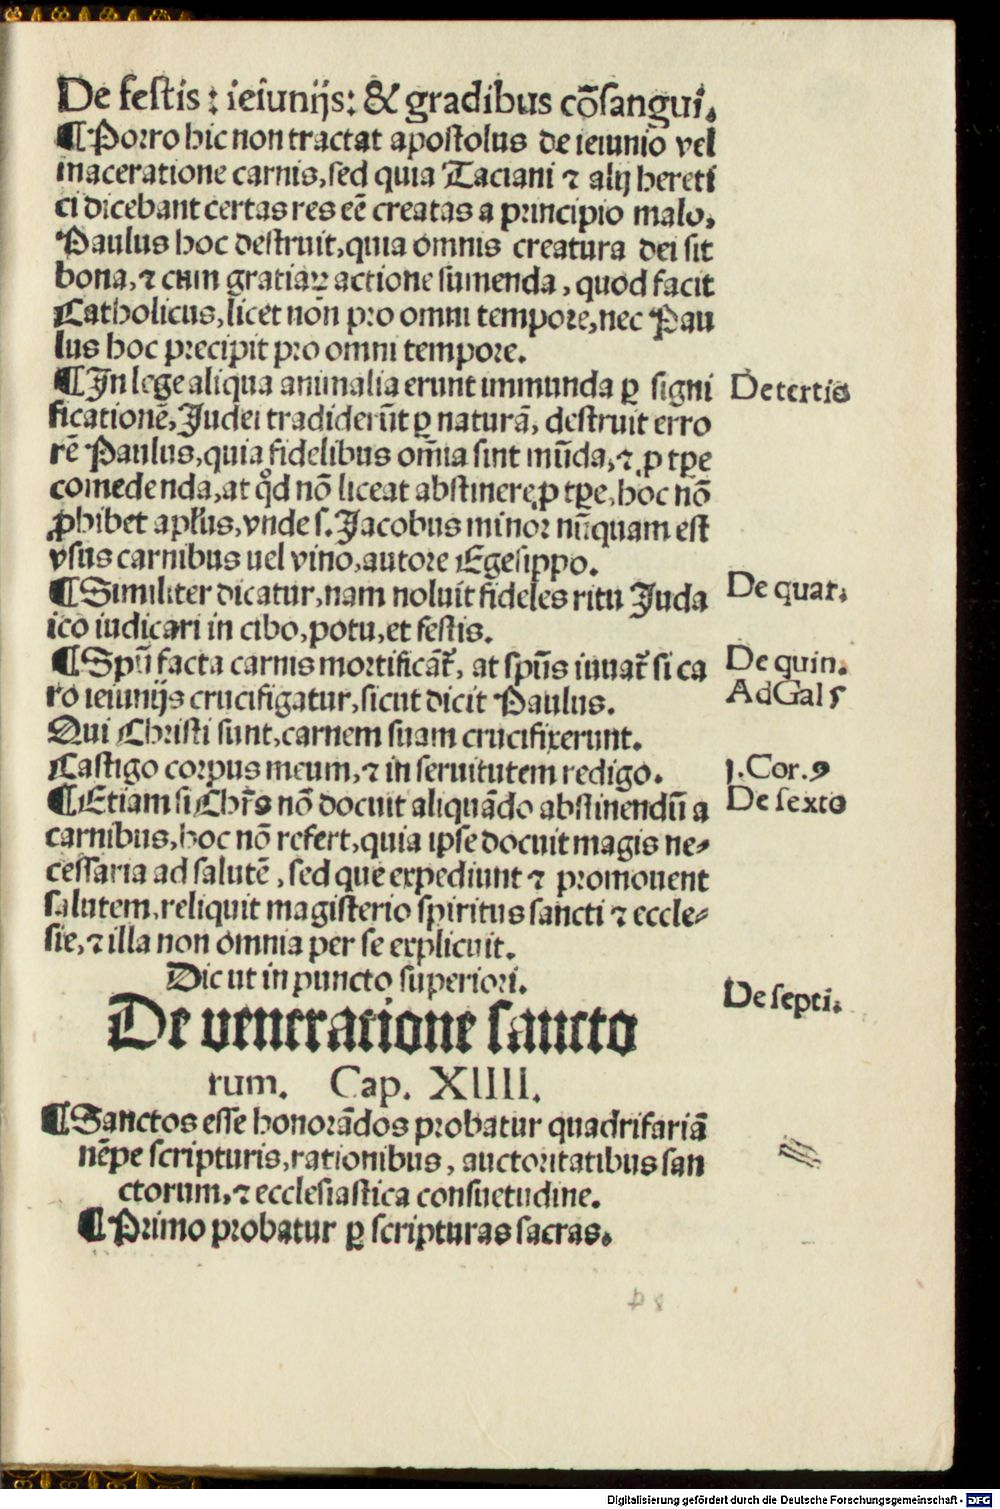 De festis : ieiunijs: & gradibus cõsangui.
¶ Porro hic non tractat apostolus de ieiunio vel
maceratione carnis, sed quia Taciani ⁊ alij hereti
ci dicebant certas res eẽ creatas a principio malo,
Paulus hoc destruit, quia omnis creatura dei sit
bona, ⁊ cum gratiaꝝ actione sumenda, quod facit
Catholicus, licet non pro omni tempore, nec Pau
lus hoc precipit pro omni tempore.
¶ In lege aliqua animalia erunt immunda ꝑ signi
De tertio
ficationẽ, Judei tradiderũt ꝑ naturã, destruit erro
rẽ Paulus, quia fidelibus om̃ia sint mũda, ⁊ ꝓ tꝑe
comedenda, at qͦd nõ liceat abstinere ꝓ tꝑe, hoc nõ
ꝓhibet apłus, vnde s. Jacobus minor nũquam est
vsus carnibus uel vino, autore Egesippo.
¶ Similiter dicatur, nam noluit fideles ritu Juda
De quar.
ico iudicari in cibo, potu, et festis.
¶ Spũ facta carnis mortificãt̃, at spũs iuuat̃ si ca
De quin.
ro ieiunijs crucifigatur, sicut dicit Paulus.
Ad Gal 5
Qui Christi sunt, carnem suam crucifixerunt.
Castigo corpus meum, ⁊ in seruitutem redigo.
1. Cor. 9
¶ Etiam si Chr̃s nõ docuit aliquãdo abstinendũ a
De sexto
carnibus, hoc nõ refert, quia ipse docuit magis ne⸗
cessaria ad salutẽ, sed que expediunt ⁊ promouent
salutem, reliquit magisterio spiritus sancti ⁊ eccle⸗
sie, ⁊ illa non omnia per se explicuit.
Dic ut in puncto superiori.
De septi.
De veneratione sancto
rum. Cap. XIIII.
¶ Sanctos esse honorãdos probatur quadrifariã
nẽpe scripturis, rationibus, auctoritatibus san
ctorum, ⁊ ecclesiastica consuetudine.
¶ Primo probatur ꝑ scripturas sacras.
Digitalisierung gefördert durch die Deutsche Forschungsgemeinschaft - DFG